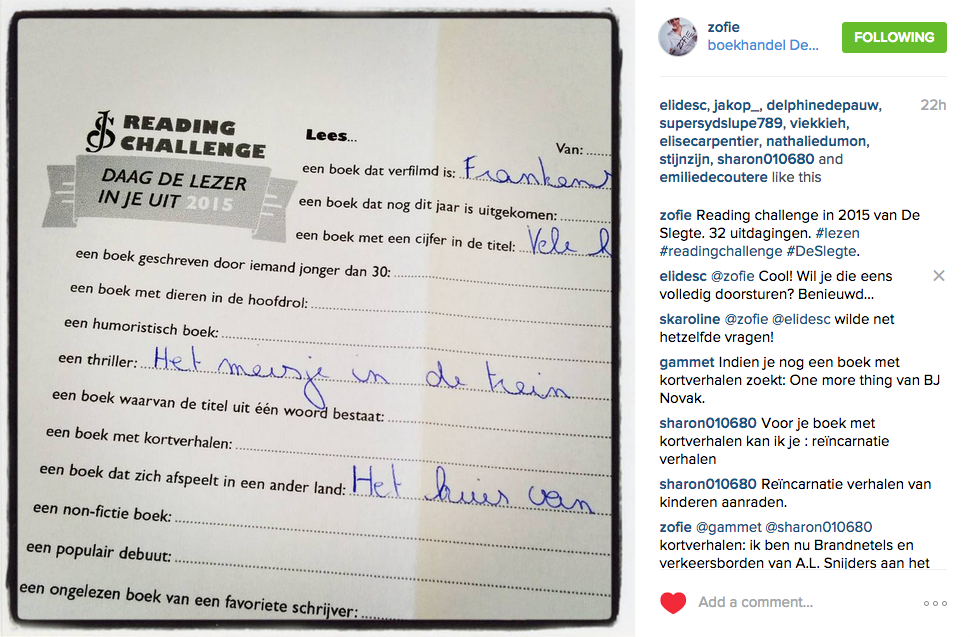 READING
CHALLENGE
DAAG DE LEZER
IN JE UIT 2015
Lees...
Van: ......
een boek dat verfilmd is: Frankens
een boek dat nog dit jaar is uitgekomen:
een boek met een cijfer in de titel: Vele
een boek geschreven door iemand jonger dan 30:
een boek met dieren in de hoofdrol:
een humoristisch boek:
een thriller: Het meisje in de trein
een boek waarvan de titel uit één woord bestaat:
een boek met kortverhalen:
een boek dat zich afspeelt in een ander land: Het huis van
een non-fictie boek:
een populair debuut:
een ongelezen boek van een favoriete schrijver:
zofie
boekhandel De...
FOLLOWING
elidesc, jakop_, delphinedepauw,
supersydslupe789, viekkieh,
elisecarpentier, nathaliedumon,
stijnzijn, sharon010680 and
emiliedecoutere like this
22h
zofie Reading challenge in 2015 van De
Slegte. 32 uitdagingen. #lezen
#readingchallenge #DeSlegte.
elidesc @zofie Cool! Wil je die eens
volledig doorsturen? Benieuwd...
skaroline @zofie @elidesc wilde net
hetzelfde vragen!
gammet Indien je nog een boek met
kortverhalen zoekt: One more thing van BJ
Novak.
sharon010680 Voor je boek met
kortverhalen kan ik je : reïncarnatie
verhalen
sharon010680 Reïncarnatie verhalen van
kinderen aanraden.
zofie @gammet @sharon010680
kortverhalen: ik ben nu Brandnetels en
verkeersborden van A.L. Snijders aan het
Add a comment...